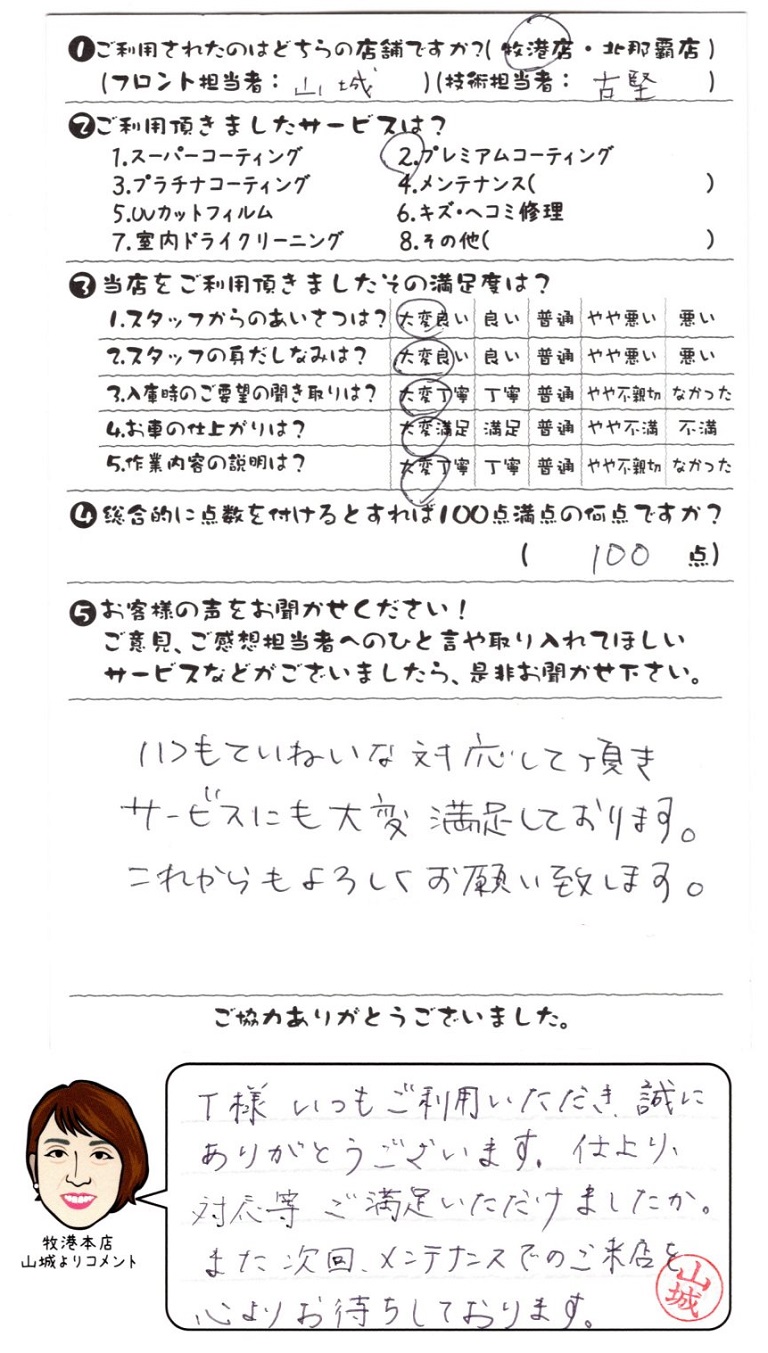 ❶ご利用されたのはどちらの店舗ですか?(牧港店・北那覇店)
(フロント担当者: 山城 )(技術担当者: 古堅 )
❷ご利用頂きましたサービスは?
1.スーパーコーティング 2.プレミアムコーティング
3.プラチナコーティング 4.メンテナンス( )
5.UVカットフィルム 6.キズ・ヘコミ修理
7.室内ドライクリーニング 8.その他( )
❸当店をご利用頂きましたその満足度は?
1.スタッフからのあいさつは? 大変良い 良い 普通 やや悪い 悪い
2.スタッフの身だしなみは? 大変良い 良い 普通 やや悪い 悪い
3.入庫時のご要望の聞き取りは? 大変丁寧 丁寧 普通 やや不親切 なかった
4.お車の仕上がりは? 大変満足 満足 普通 やや不満 不満
5.作業内容の説明は? 大変丁寧 丁寧 普通 やや不親切 なかった
❹総合的に点数を付けるとすれば100点満点の何点ですか?
( 100 点)
❺お客様の声をお聞かせください!
ご意見、ご感想担当者へのひと言や取り入れてほしい
サービスなどがございましたら、是非お聞かせ下さい。
いつもていねいな対応して頂き
サービスにも大変満足しております。
これからもよろしくお願い致します。
ご協力ありがとうございました。
T様 いつもご利用いただき 誠に
ありがとうございます。仕上り、
対応等 ご満足いただけましたか。
また次回、メンテナンスでのご来店を
心よりお待ちしております。
山城
牧港本店
山城よりコメント